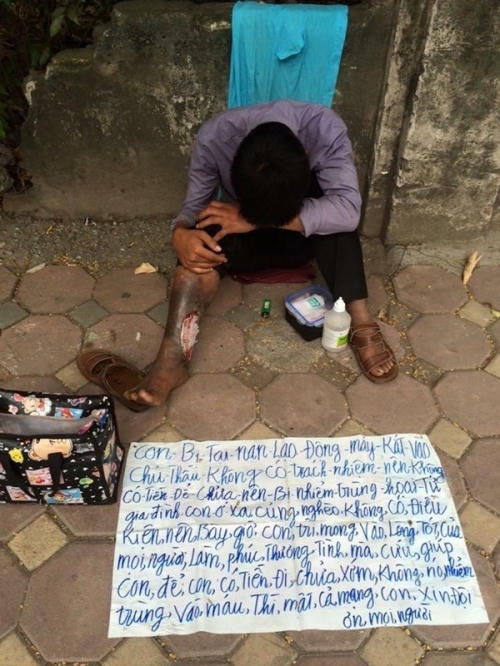 Con Bị Tai nạn Lao Động máy Kắt Vào
Chủ Thầu Không có trách nhiệm nên Không
Có Tiền Để Chữa nên Bị nhiễm trùng hoại Tử
gia đình con ở xa cũng nghèo Không Có Điều
Kiện, nên, Bay, giờ, con, trị, mong, Vào, Lòng Tốt, Của
mọi, người, Làm, phúc, Thương, Tình, mà, cứu, giúp
Con, để, con, Có, Tiền, Đi, chửa, Xớm, Không, nó, nhiễm
trung, Vào, máu, Thì, mất, Cả, mạng, con, Xin, Đội
ơn, mọi, người